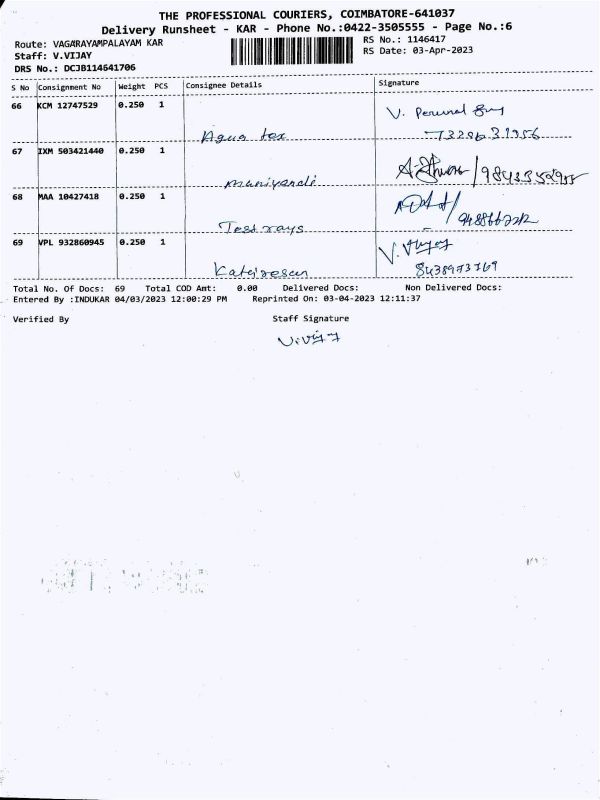 THE PROFESSIONAL COURIERS, COIMBATORE-641037
Delivery Runsheet - KAR - Phone No.:0422-3505555 - Page No.:6
Route: VAGARAYAMPALAYAM KAR
RS No.: 1146417
Staff: V.VIJAY
RS Date: 03-Apr-2023
DRS No.: DCJB114641706
S No Consignment No Weight PCS Consignee Details Signature
66 KCM 12747529 0.250 1
Aqua tex
67 IXM 503421440 0.250 1
muniyandi
68 MAA 10427418 0.250 1
Tess rays
69 VPL 932860945 0.250 1
8438973769
Total No. Of Docs: 69 Total COD Amt: 0.00 Delivered Docs: Non Delivered Docs:
Entered By :INDUKAR 04/03/2023 12:00:29 PM Reprinted On: 03-04-2023 12:11:37
Verified By Staff Signature
V.Vijay